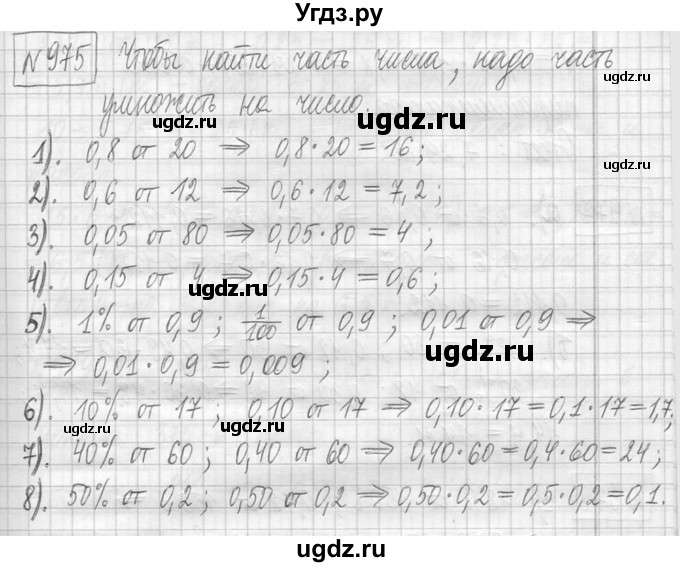 Угдз.ру
№975 Чтобы найти часть числа, надо часть
умножить на число.
1). 0,8 от 20 ⇒ 0,8·20 = 16;
2). 0,6 от 12 ⇒ 0,6·12 = 7,2;
3). 0,05 от 80 ⇒ 0,05·80 = 4;
4). 0,15 от 4 ⇒ 0,15·4 = 0,6;
5). 1% от 0,9; 1/100 от 0,9; 0,01 от 0,9 ⇒
⇒ 0,01·0,9 = 0,009;
6). 10% от 17; 0,10 от 17 ⇒ 0,10·17 = 0,1·17 = 1,7;
7). 40% от 60; 0,40 от 60 ⇒ 0,40·60 = 0,4·60 = 24;
8). 50% от 0,2; 0,50 от 0,2 ⇒ 0,50·0,2 = 0,5·0,2 = 0,1.
ugdz.ru
ugdz.ru
ugdz.ru
ugdz.ru
ugdz.ru
ugdz.ru
ugdz.ru
ugdz.ru
ugdz.ru
ugdz.ru